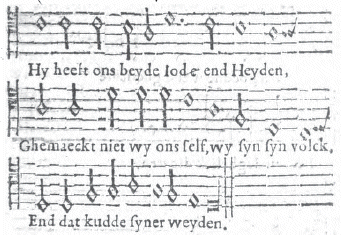 Hy heeft ons beyde Iode end Heyden,
Ghemaeckt niet wy ons ſelf, wy ſyn ſyn volck,
End dat kudde ſyner weyden.